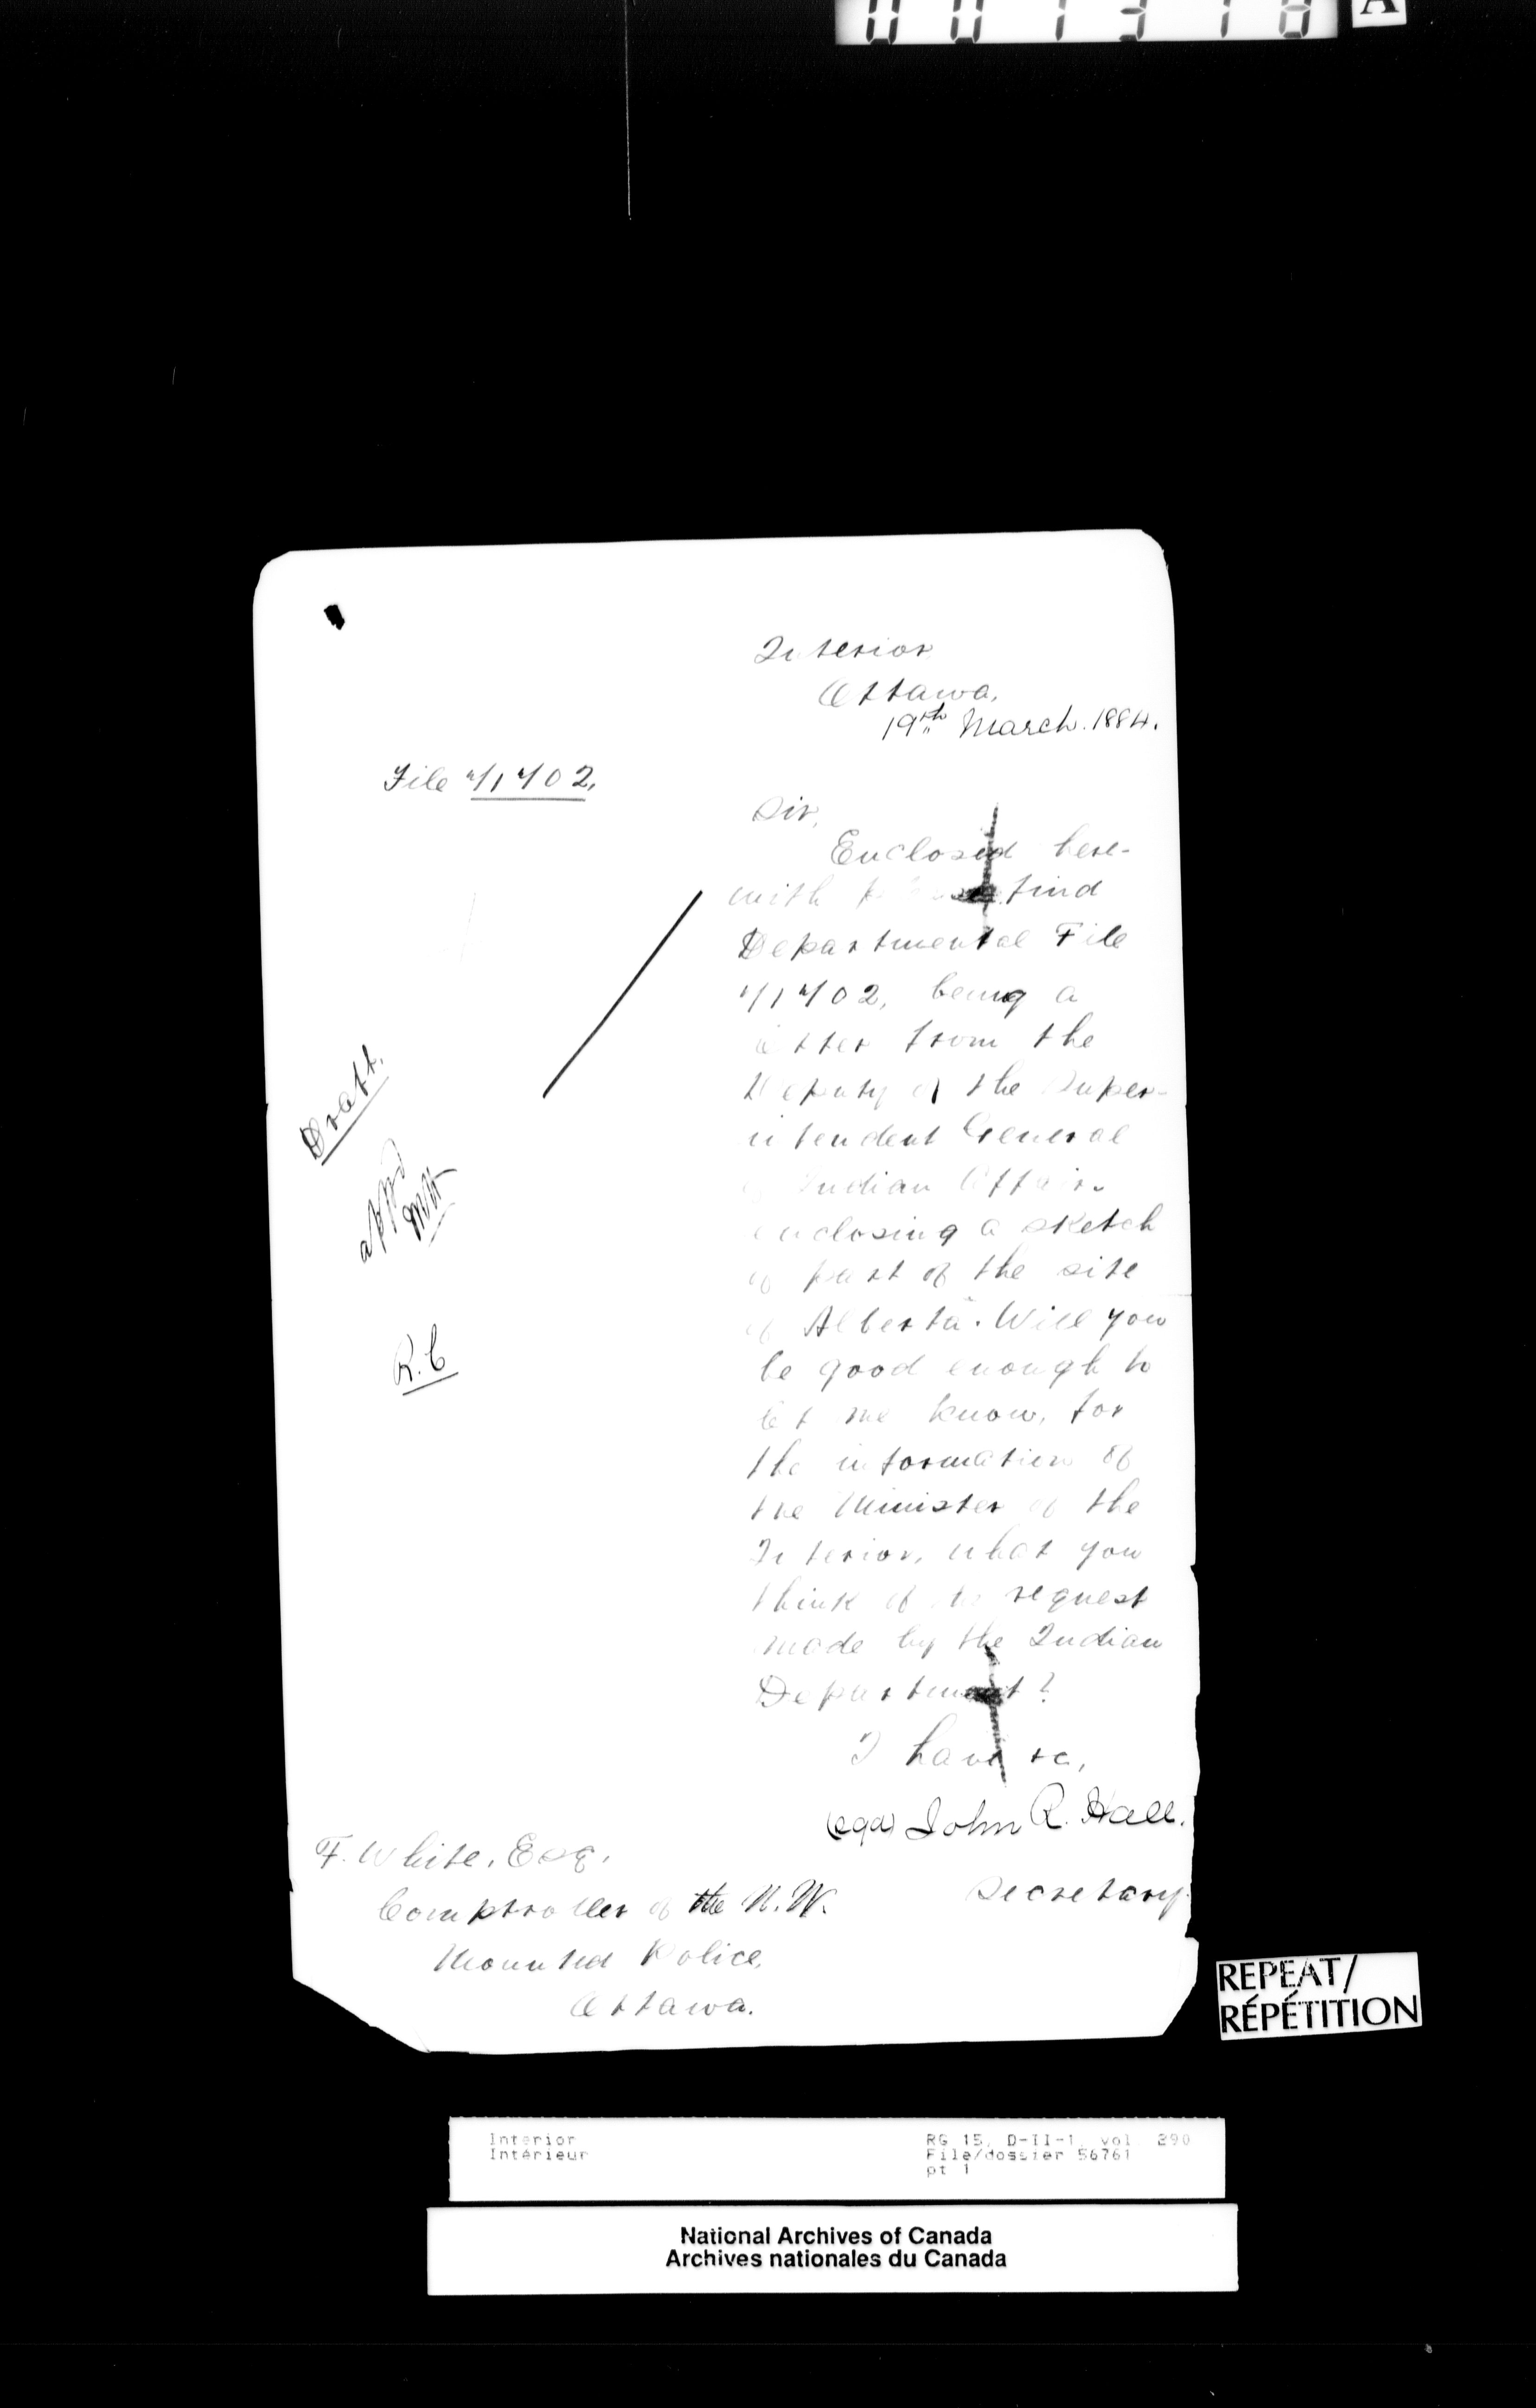 001318
A
Interior
Ottawa,
19th March. 1884.
File 71702,
Sir,
Enclosed here-
with please find
Departmental File
71702, being a
letter from the
Deputy of the Super-
intendent General
of Indian Affairs
enclosing a sketch
of part of the site
of Alberta. Will you
be good enough to
let me know, for
the information of
the Minister of the
Interior, what you
think of the request
made by the Indian
Department?
I have &c,
(sgd) John R. Hall.
Secretary
Draft.
appd
R.C
F. White, Esq.
Comptroller of the N.W.
Mounted Police,
Ottawa.
REPEAT/
RÉPÉTITION
Interior
Intérieur
RG 15, D-II-1, vol 290
File/dossier 56761
pt 1
National Archives of Canada
Archives nationales du Canada